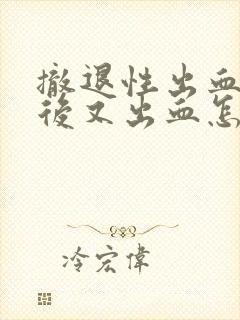 撤退性出血
後又出血怎
冷宏偉